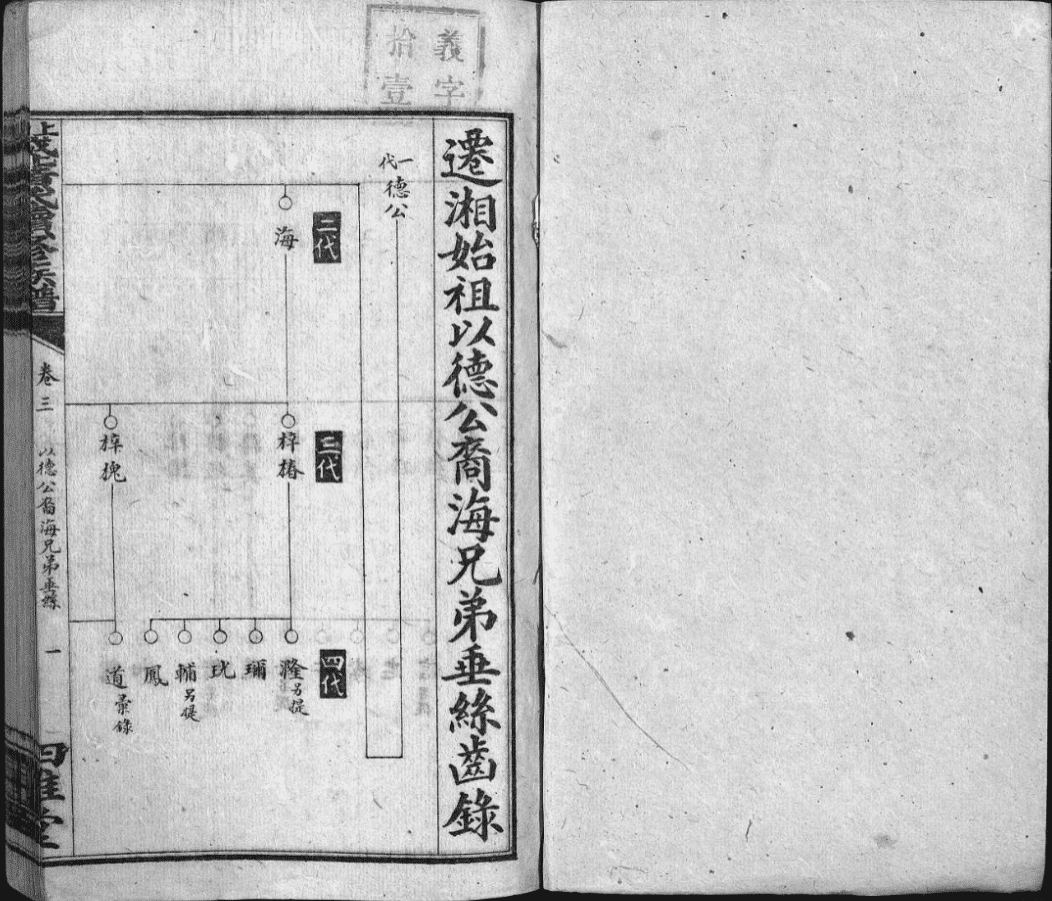 義字
拾壹
遷湘始祖以德公裔海兄弟垂絲齒錄
一代
德公
二代
海
三代
梓椿
梓槐
四代
隆另提
珊
珖
輔另提
鳳
道彙錄
續修族譜
卷三
以德公裔海兄弟垂絲
一
四維堂